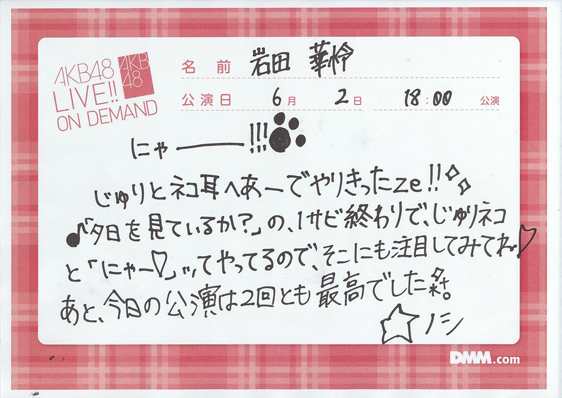 AKB48
LIVE!!
ON DEMAND
AKB
48
名前 岩田 華怜
公演日 6月 2日 18:00 公演
にゃー!!!
じゅりとネコ耳へあーでやりきったze!!
♪「夕日を見ているか?」の、1サビ終わりで、じゅりネコ
と「にゃー♡」ってやってるので、そこにも注目してみてね♡
あと、今日の公演は2回とも最高でした。
☆ノシ
DMM.com